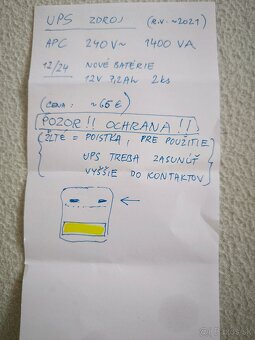 UPS ZDROJ (R.V. ~2021)
APC 240V~ 1400 VA
12/24 NOVÉ BATÉRIE
12V 7,2Ah 2ks
(CENA: ~65€)
POZOR!! OCHRANA!!
ŽLTÉ = POISTKA, PRE POUŽITIE
UPS TREBA ZASUNÚŤ
VYŠŠIE DO KONTAKTOV